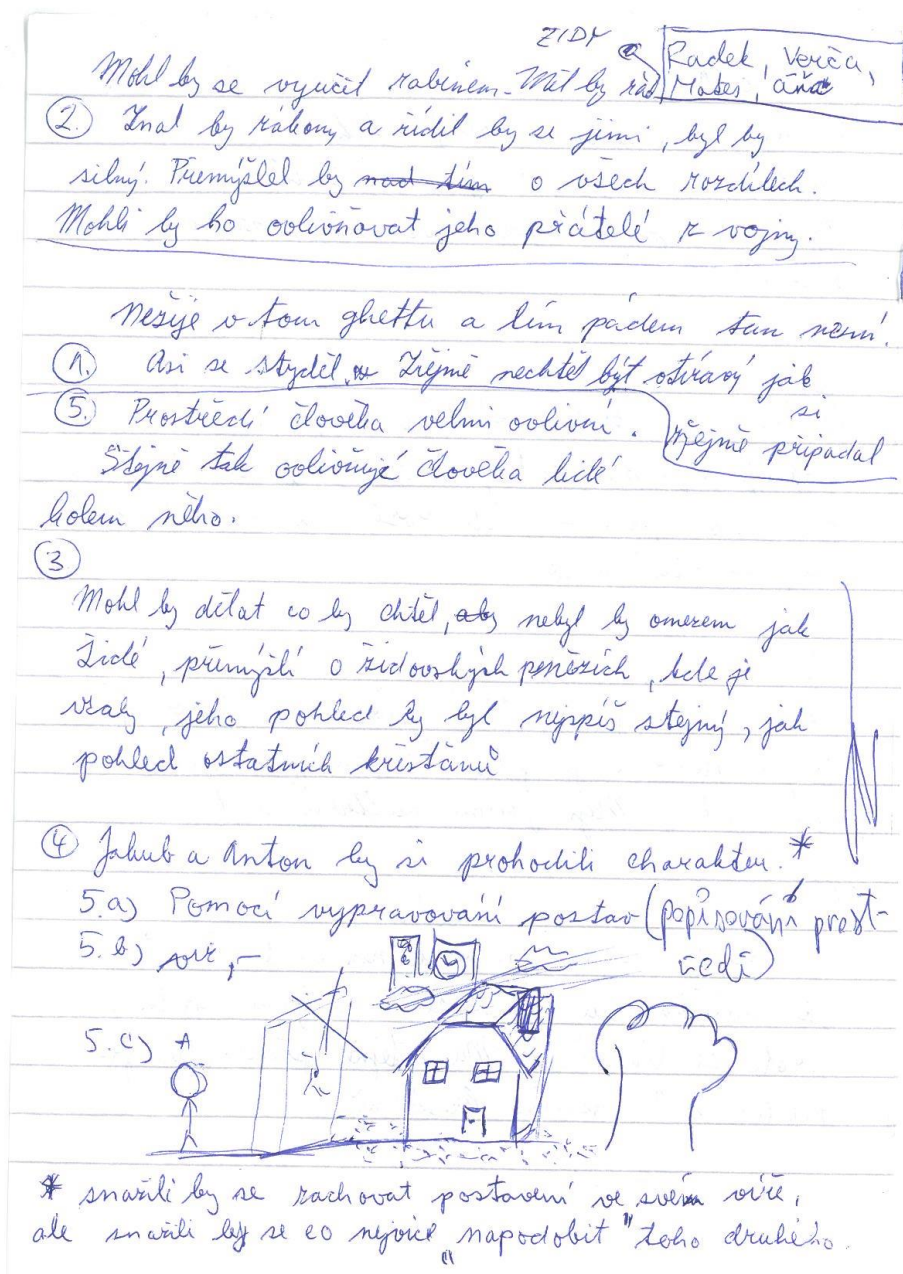 ZIDY
Radek, Verča,
Matěj, Áňa
Mohl by se vyučit rabínem. Měl by rád
2. Znal by zákony a řídil by se jimi, byl by
silný. Přemýšlel by nad tím o všech rozdílech.
Mohli by ho ovlivňovat jeho přátelé z vojny.
Nežije v tom ghettu a tím pádem tam nesmí.
1. Asi se styděl. Zřejmě nechtěl být otravý jak
si
zřejmě připadal
5. Prostředí člověka velmi ovlivní.
Stejně tak ovlivňují člověka lidé
kolem něho.
3
Mohl by dělat co by chtěl, aby nebyl by omezem jak
Židé, přemýšlí o židovských penězích, kde je
vzaly, jeho pohled by byl nejspíš stejný, jak
pohled ostatních křesťanů
4 Jakub a Anton by si prohodili charakter. *
5.a) Pomocí vypravování postav (popisování prost-
ředí)
5.b)
5.c) A
* snažili by se zachovat postavení ve svém víře,
ale snažili by se co nejvíce "napodobit" toho druhého.